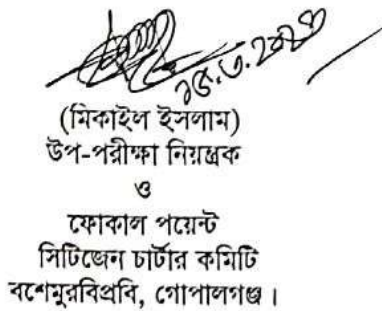 (মিকাইল ইসলাম)
উপ-পরীক্ষা নিয়ন্ত্রক
ও
ফোকাল পয়েন্ট
সিটিজেন চার্টার কমিটি
বশেমুরবিপ্রবি, গোপালগঞ্জ।